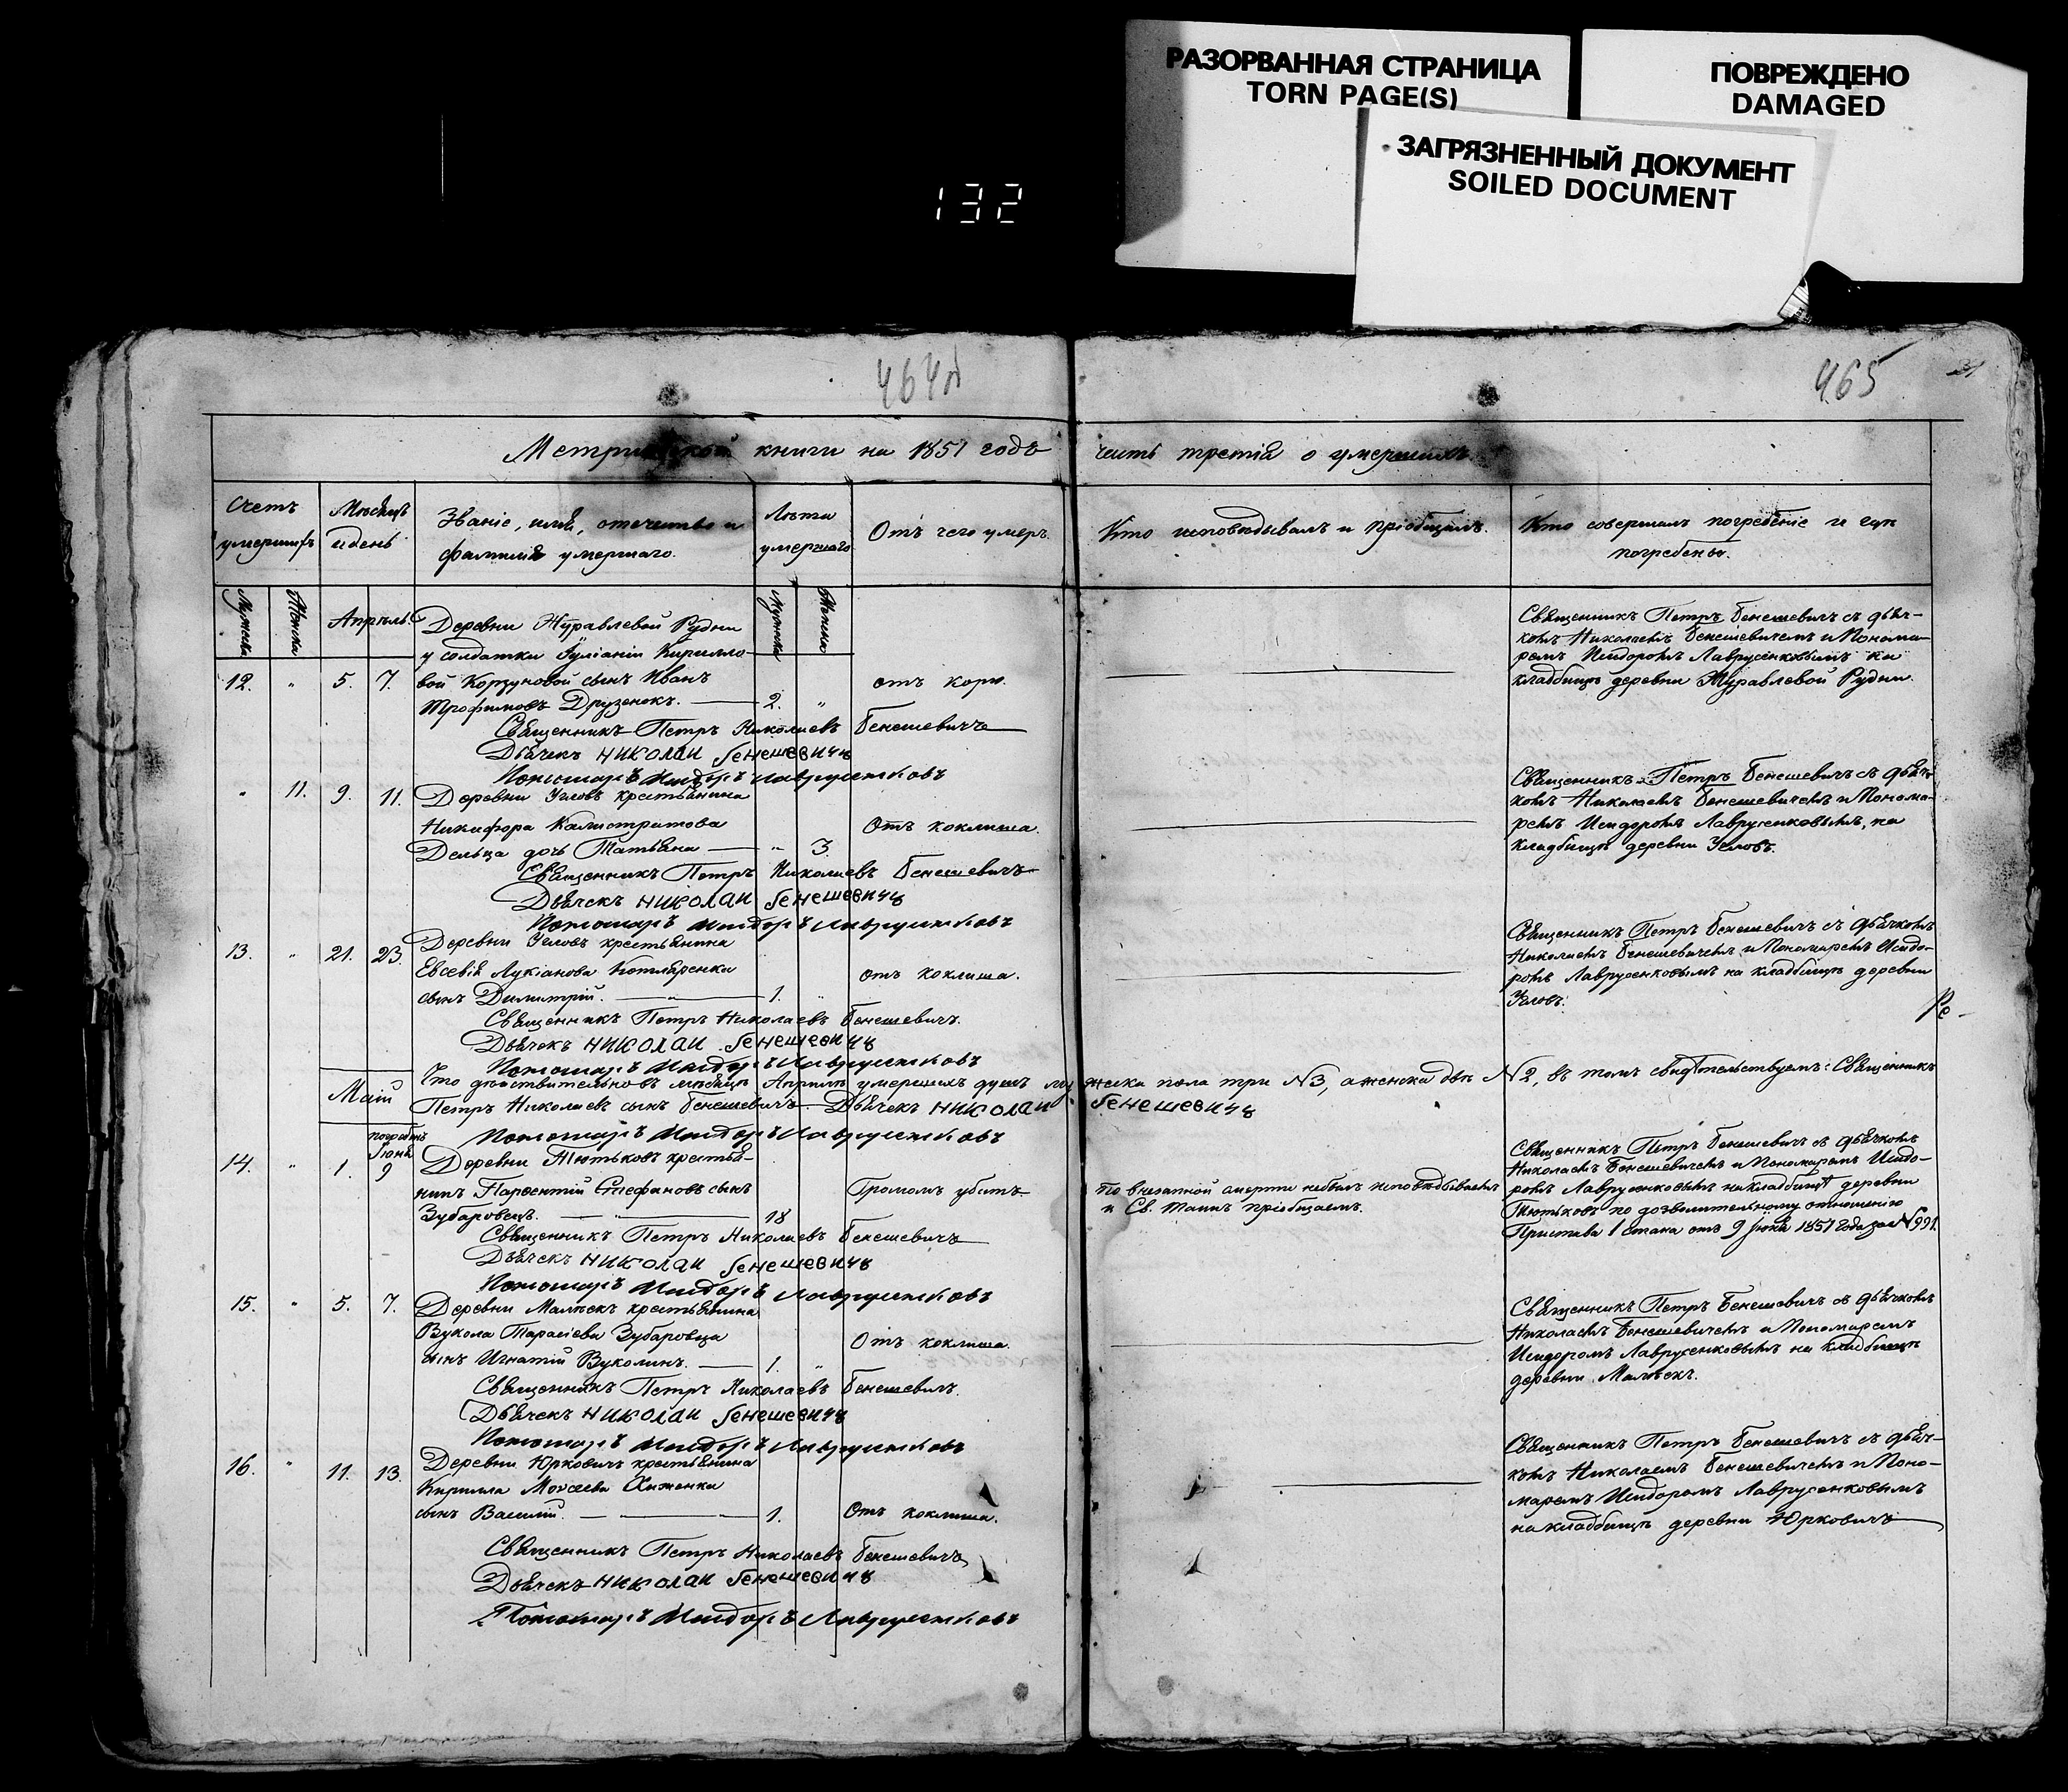 РАЗОРВАННАЯ СТРАНИЦА
TORN PAGE(S)
ПОВРЕЖДЕНО
DAMAGED
ЗАГРЯЗНЕННЫЙ ДОКУМЕНТ
SOILED DOCUMENT
132
464
465
31
Метрической книги на 1851 годъ часть третія о умершихъ.
Счетъ умершихъ
Мѣсяцъ и день
Званіе, имя, отечество и
фамилія умершаго.
Лѣта умершаго
Отъ чего умеръ.
Кто исповѣдывалъ и пріобщалъ.
Кто совершалъ погребеніе и гдѣ
погребены.
Мужеска
Женска
Апрѣль
Мужеска
Женска
Деревни Журавлевой Рудни
у солдатки Іуліаніи Кирилло-
12. " 5. 7. вой Корзуновой сынъ Иванъ отъ кори.
Трофимовъ Друзенокъ. 2. "
Священникъ Петръ Николаевъ Бенешевичъ
Дьячекъ Николай Бенешевичъ
Пономарь Исидоръ Лаврусенковъ
Священникъ Петръ Бенешевичъ съ дьяч-
комъ Николаемъ Бенешевичемъ и Понома-
ремъ Исидоромъ Лаврусенковымъ на
кладбищѣ деревни Журавлевой Рудни.
" 11. 9. 11. Деревни Углов крестьянина
Никифора Калистратова Отъ коклюша.
Дельца дочь Татьяна " 3.
Священникъ Петръ Николаевъ Бенешевичъ
Дьячекъ Николай Бенешевичъ
Пономарь Исидоръ Лаврусенковъ
Священникъ Петръ Бенешевичъ съ дьяч-
комъ Николаемъ Бенешевичемъ и Понома-
ремъ Исидоромъ Лаврусенковымъ, на
кладбищѣ деревни
13. " 21. 23. Деревни крестьянина
Евсевія Лукіанова Котляренка отъ коклюша.
сынъ Димитрій. 1. "
Священникъ Петръ Николаевъ Бенешевичъ.
Дьячекъ Николай Бенешевичъ
Пономарь Исидоръ Лаврусенковъ
Священникъ Петръ Бенешевичъ съ дьячкомъ
Николаемъ Бенешевичемъ и Пономаремъ Исидо-
ромъ Лаврусенковымъ на кладбищѣ деревни
Ре-
Что дѣйствительно въ мѣсяцѣ Апрѣлѣ умершихъ душъ мужеска пола три №3, а женска двѣ №2, въ томъ свидѣтельствуемъ: Священникъ
Май
Петръ Николаевъ сынъ Бенешевичъ. Дьячекъ Николай Бенешевичъ
Пономарь Исидоръ Лаврусенковъ
погребенъ
Іюня
14. " 1. 9 Деревни Тютьковъ крестья-
нинъ Парѳентій Стефановъ сынъ Громомъ убитъ
Зубаровецъ. 18
Священникъ Петръ Николаевъ Бенешевичъ
Дьячекъ Николай Бенешевичъ
Пономарь Исидоръ Лаврусенковъ
По внезапной смерти небылъ исповѣдываемъ
и Св. Таинъ пріобщаемъ.
Священникъ Петръ Бенешевичъ съ дьячкомъ
Николаемъ Бенешевичемъ и Пономаремъ Исидо-
ромъ Лаврусенковымъ на кладбищѣ деревни
Тютьковъ по дозволительному отношенію
Пристава 1 стана отъ 9 Іюня 1851 года за №991.
15. " 5. 7. Деревни Малѣекъ крестьянина
Вукола Тарасіева Зубаровца Отъ коклюша.
сынъ Игнатій Вуколинъ. 1. "
Священникъ Петръ Николаевъ Бенешевичъ.
Дьячекъ Николай Бенешевичъ
Пономарь Исидоръ Лаврусенковъ
Священникъ Петръ Бенешевичъ съ дьячкомъ
Николаемъ Бенешевичемъ и Пономаремъ
Исидоромъ Лаврусенковымъ на кладбищѣ
деревни Малѣекъ.
16. " 11. 13. Деревни Юрковичъ крестьянина
Кирилла Моѵсеева Хиженка
сынъ Василій. 1. Отъ коклюша.
Священникъ Петръ Николаевъ Бенешевичъ
Дьячекъ Николай Бенешевичъ
Пономарь Исидоръ Лаврусенковъ
Священникъ Петръ Бенешевичъ съ дьяч-
комъ Николаемъ Бенешевичемъ и Поно-
маремъ Исидоромъ Лаврусенковымъ
на кладбищѣ деревни Юрковичъ